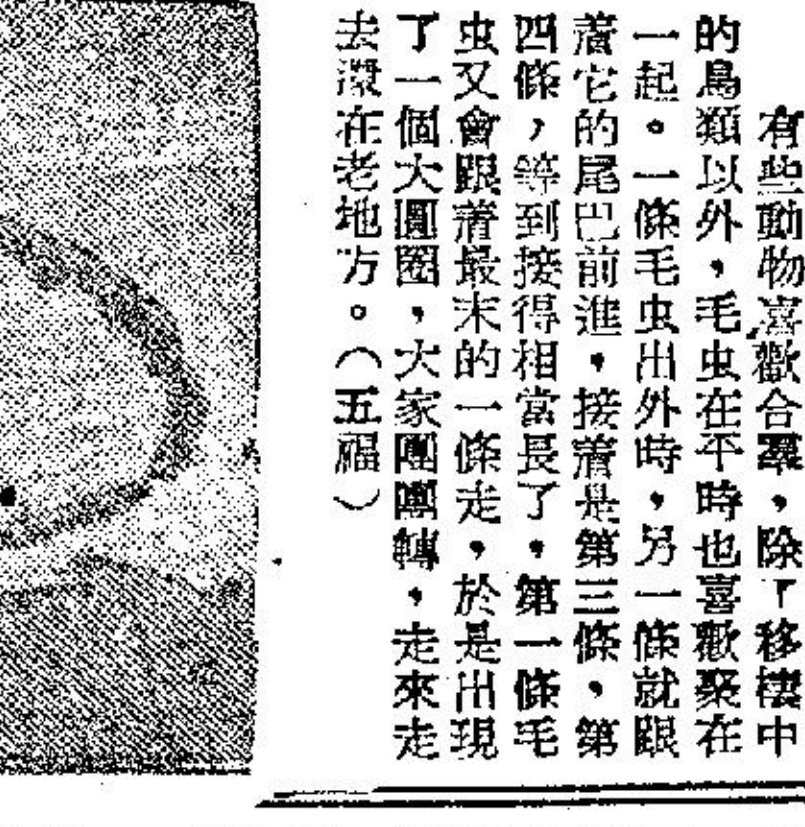 有些動物喜歡合羣，除了移棲中
的鳥類以外，毛虫在平時也喜歡聚在
一起。一條毛虫出外時，另一條就跟
着它的尾巴前進，接着是第三條，第
四條，等到接得相當長了，第一條毛
虫又會跟着最末的一條走，於是出現
了一個大圓圈，大家團團轉，走來走
去還在老地方。（五福）